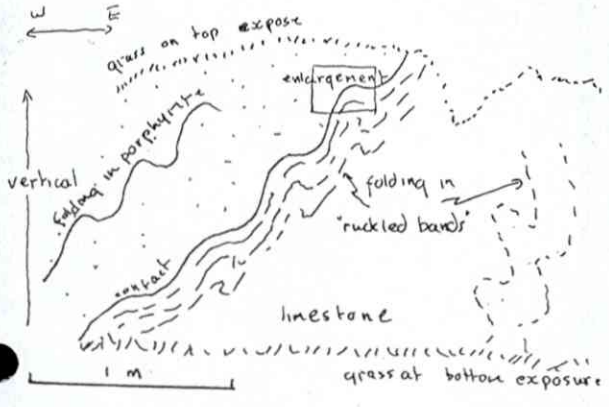 W E
grass on top expose
enlargement
folding in porphyrite
vertical
folding in
"ruckled bands"
contact
limestone
1 m
grass at bottom exposure